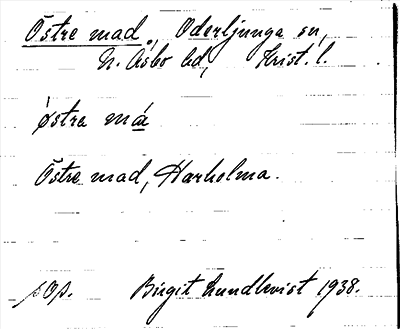 Östre mad., Oderljunga sn,
N. Åsbo hd, Krist. l.
østra má
Östre mad, Harholma.
pOp.
Birgit Lundkvist 1938.